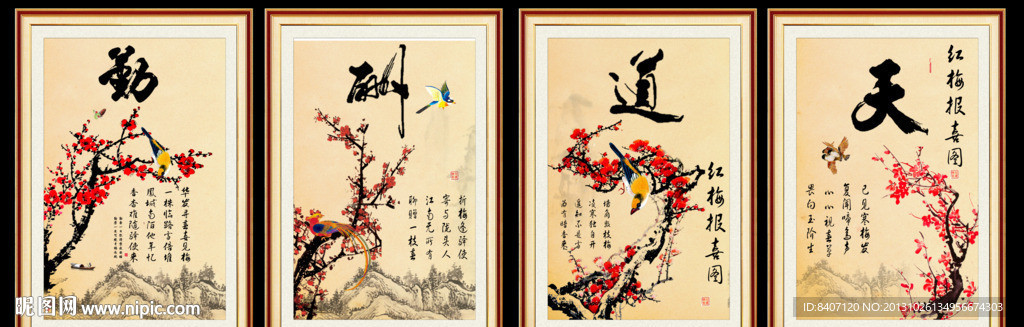 天
红梅报喜图
已见寒梅发
复闻啼鸟声
心心视春草
畏向玉阶生
道
红梅报喜图
墙角数枝梅
凌寒独自开
遥知不是雪
为有暗香来
酬
折梅逢驿使
寄与陇头人
江南无所有
聊赠一枝春
勤
华发寻春喜见梅
一株临路雪倍堆
凤城南陌他年忆
香杳难随驿使来
昵图网 www.nipic.com
ID:8407120 NO:20131026134956674303